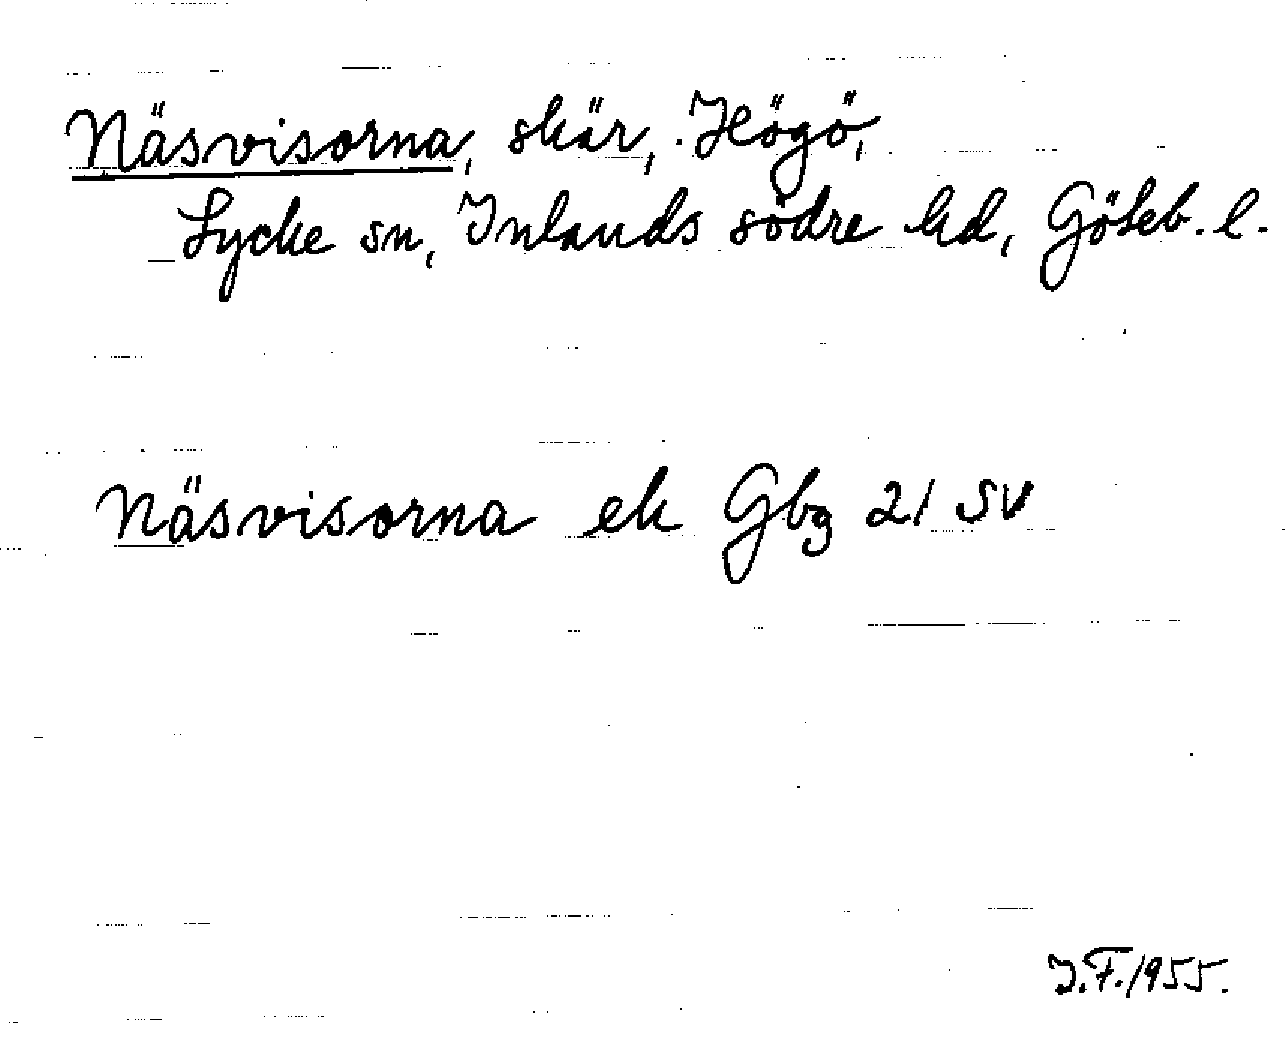 Näsvisorna, skär, Högö,
Lycke sn, Inlands södre hd, Göteb. l.
Näsvisorna ek Gbg 21 SV
J.F. 1955.